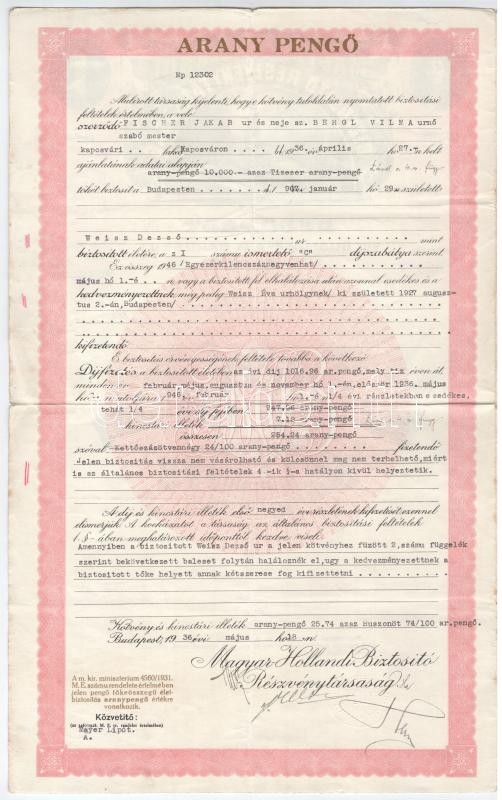 ARANY PENGŐ
Hp 12302
Alulírott társaság kijelenti, hogy e kötvény túloldalán nyomtatott biztosítási
feltételek értelmében, a vele
szerződő FISCHER JAKAB ur és neje sz. BEHGL VILMA urnő
szabó mester
kaposvári Kaposváron 1936 évi április hó 27-n kelt
ajánlatának adatai alapján
arany-pengő 10.000.— azaz Tizezer arany-pengő
tőkét biztosít a Budapesten 1907. január hó 29-n született
Weisz Dezső ur mint
biztosított életére a z I számu ismertető "C" díjszabálya szerint
Ez összeg 1946 /Egyezerkilencszáznegyvenhat/
május hó 1.-én, vagy a biztosított fél elhalálozása után azonnal esedékes és a
kedvezményezettnek meg pedig Weisz Éva urhölgynek/ ki született 1927 augusz-
tus 2.-án, Budapesten/
kifizetendő
E biztosítás érvényességének feltétele továbbá a következő
Díjfizetés a biztosított életében az évi díj 1016.96 arany-pengő, mely tiz éven át
minden év február, május, augusztus és november hó 1-én, először 1936. május
hó 1-én utoljára 1946. február hó 1-én 1/4 évi részletekben esedékes,
tehát 1/4 évi díj fejében 247.06 arany-pengő
kincstári illeték 7.18 arany-pengő
összesen 254.24 arany-pengő
szóval Kettőszázötvennégy 24/100 arany-pengő fizetendő
Jelen biztosítás vissza nem vásárolható és kölcsönnel meg nem terhelhető, miért
is az általános biztosítási feltételek 4.-ik §-a hatályon kívül helyeztetik.
A díj és kincstári illeték első negyed évi részletének kifizetését ezennel
elismerjük. A kockázatot a társaság az általános biztosítási feltételek
1.§-ában meghatározott időponttól kezdve viseli.
Amennyiben a biztosított Weisz Dezső ur a jelen kötvényhez füzött 2.számu függelék
szerint bekövetkezett baleset folytán haláloznék el, ugy a kedvezményezettnek a
biztosított tőke helyett annak kétszerese fog kifizettetni
Kötvény és kincstári illeték arany-pengő 25.74 azaz Huszonöt 74/100 ar.pengő.
Budapest, 1936 évi május hó 18-n
Magyar Hollandi Biztosító
Részvénytársaság
A m. kir. miniszterium 4560/1931.
M. E. számu rendelete értelmében
jelen pengő tőkeösszegü élet-
biztosítás aranypengő értékre
vonatkozik.
Közvetitő:
Mayer Lipót.
A.